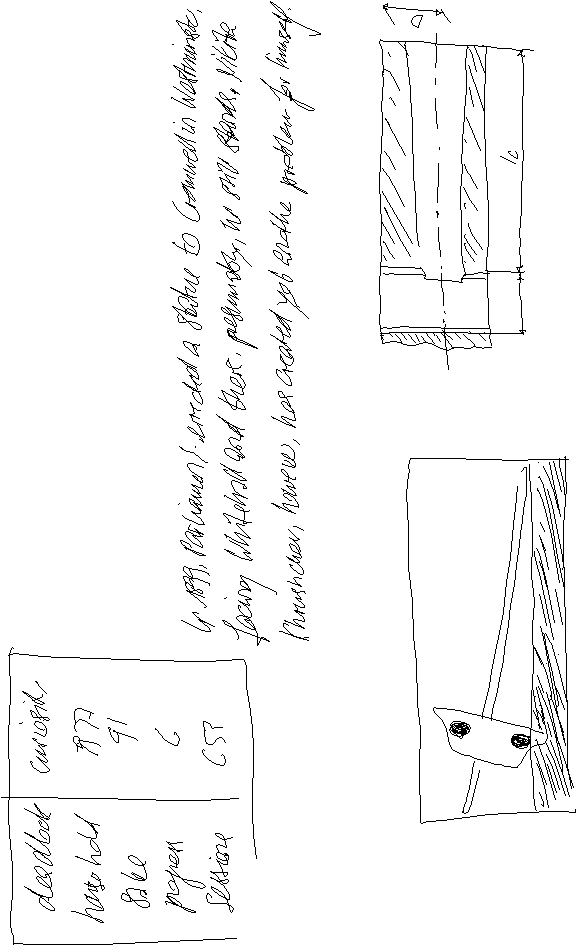 In 1899, Parliament erected a statue to Cromwell in Westminster,
facing Whitehall and there, presumably, he still stands. Nikita
Khrushchev, however, has created yet another problem for himself.
deadlock curiosity
household 877
sake 91
progress 6
sessions 653
D
lc